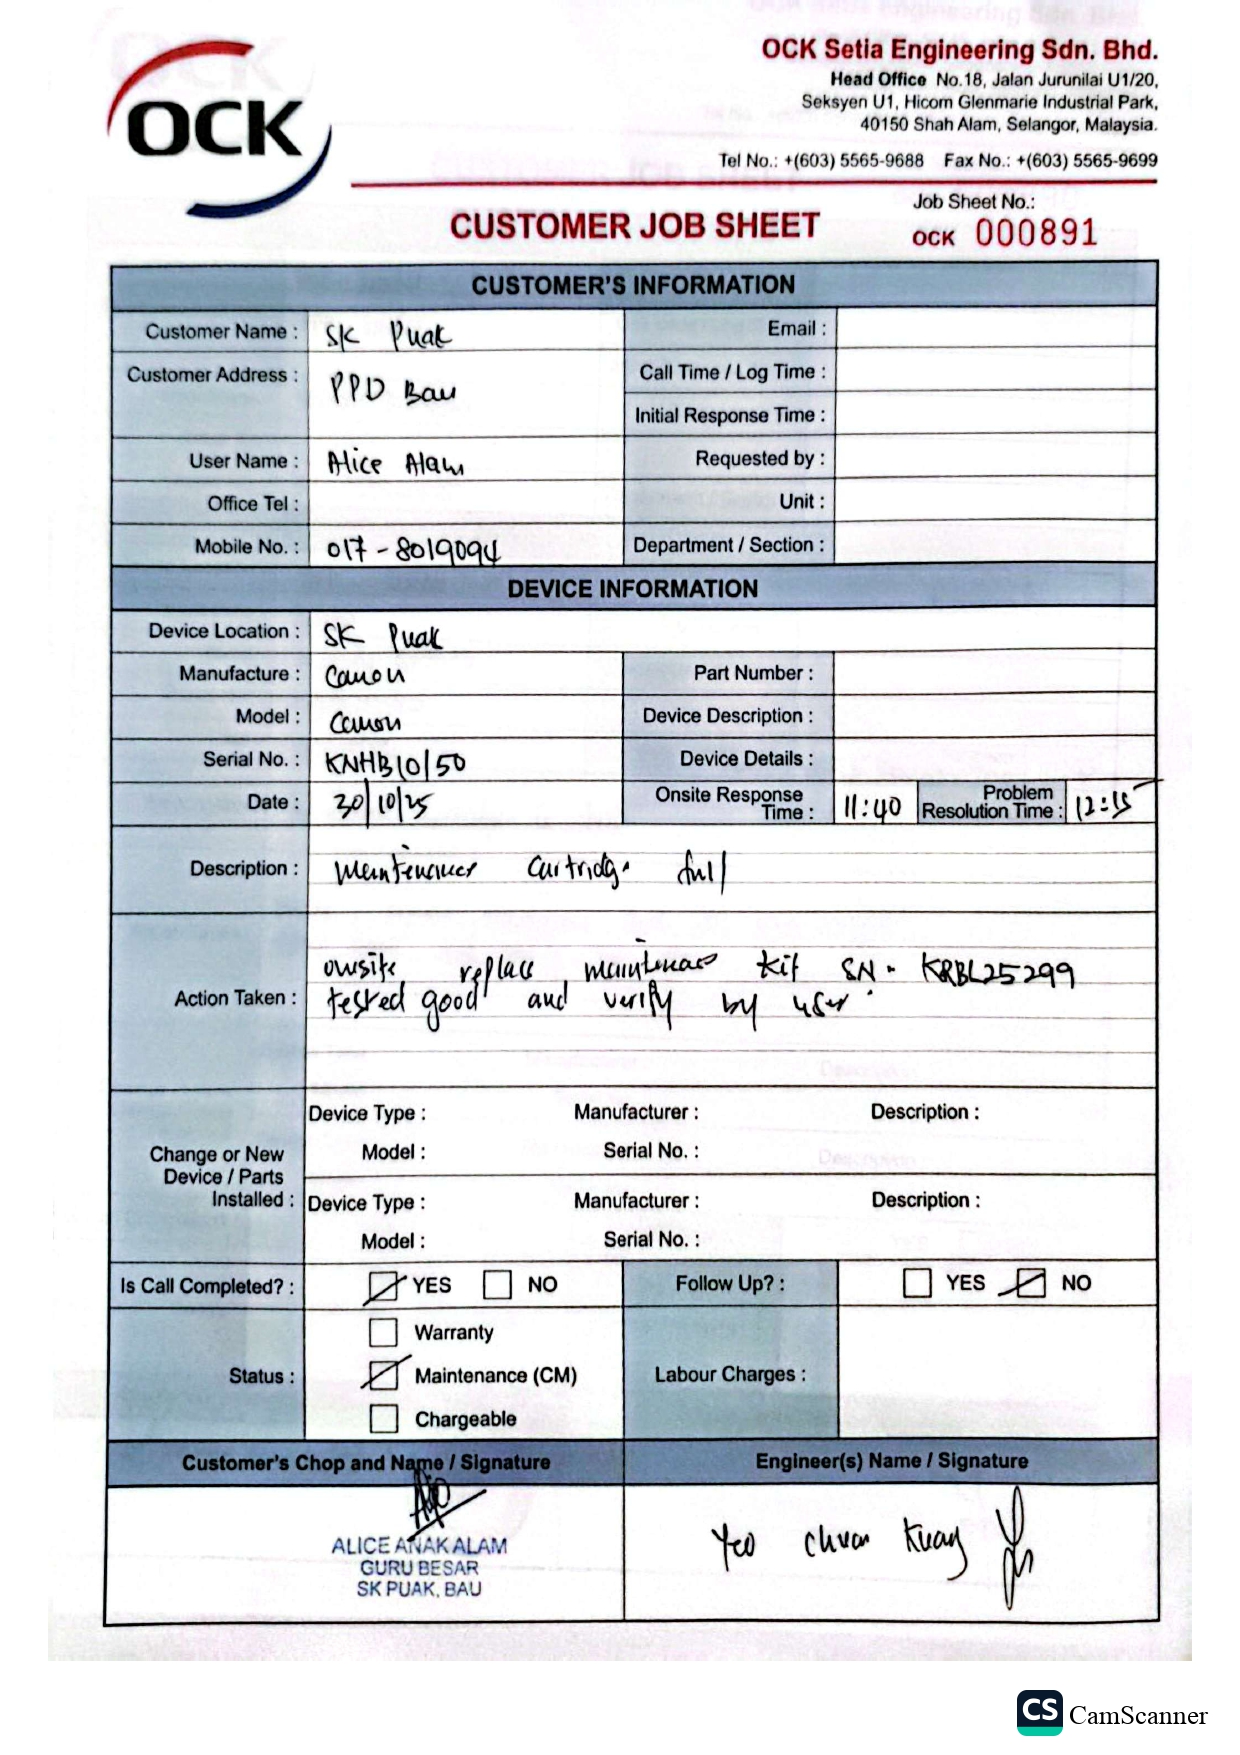 OCK
OCK Setia Engineering Sdn. Bhd.
Head Office No.18, Jalan Jurunilai U1/20,
Seksyen U1, Hicom Glenmarie Industrial Park,
40150 Shah Alam, Selangor, Malaysia.
Tel No.: +(603) 5565-9688 Fax No.: +(603) 5565-9699
CUSTOMER JOB SHEET
Job Sheet No.:
OCK 000891
CUSTOMER'S INFORMATION
Customer Name : SK Puak
Email :
Customer Address : PPD Bau
Call Time / Log Time :
Initial Response Time :
User Name : Alice Alam
Requested by :
Office Tel :
Unit :
Mobile No. : 017-8019094
Department / Section :
DEVICE INFORMATION
Device Location : SK Puak
Manufacture : Canon
Part Number :
Model : Canon
Device Description :
Serial No. : KNHB10150
Device Details :
Date : 30/10/25
Onsite Response Time : 11:40
Problem Resolution Time : 12:15
Description : Cartridge full
Action Taken : onsite replace kit SN- KRBL25299
tested good and verify by user.
Change or New Device / Parts Installed :
Device Type : Manufacturer : Description :
Model : Serial No. :
Device Type : Manufacturer : Description :
Model : Serial No. :
Is Call Completed? : YES NO
Follow Up? : YES NO
Status :
Warranty
Maintenance (CM)
Chargeable
Labour Charges :
Customer's Chop and Name / Signature
Engineer(s) Name / Signature
ALICE ANAK ALAM
GURU BESAR
SK PUAK, BAU
Yeo Chuan Kuang
CS CamScanner